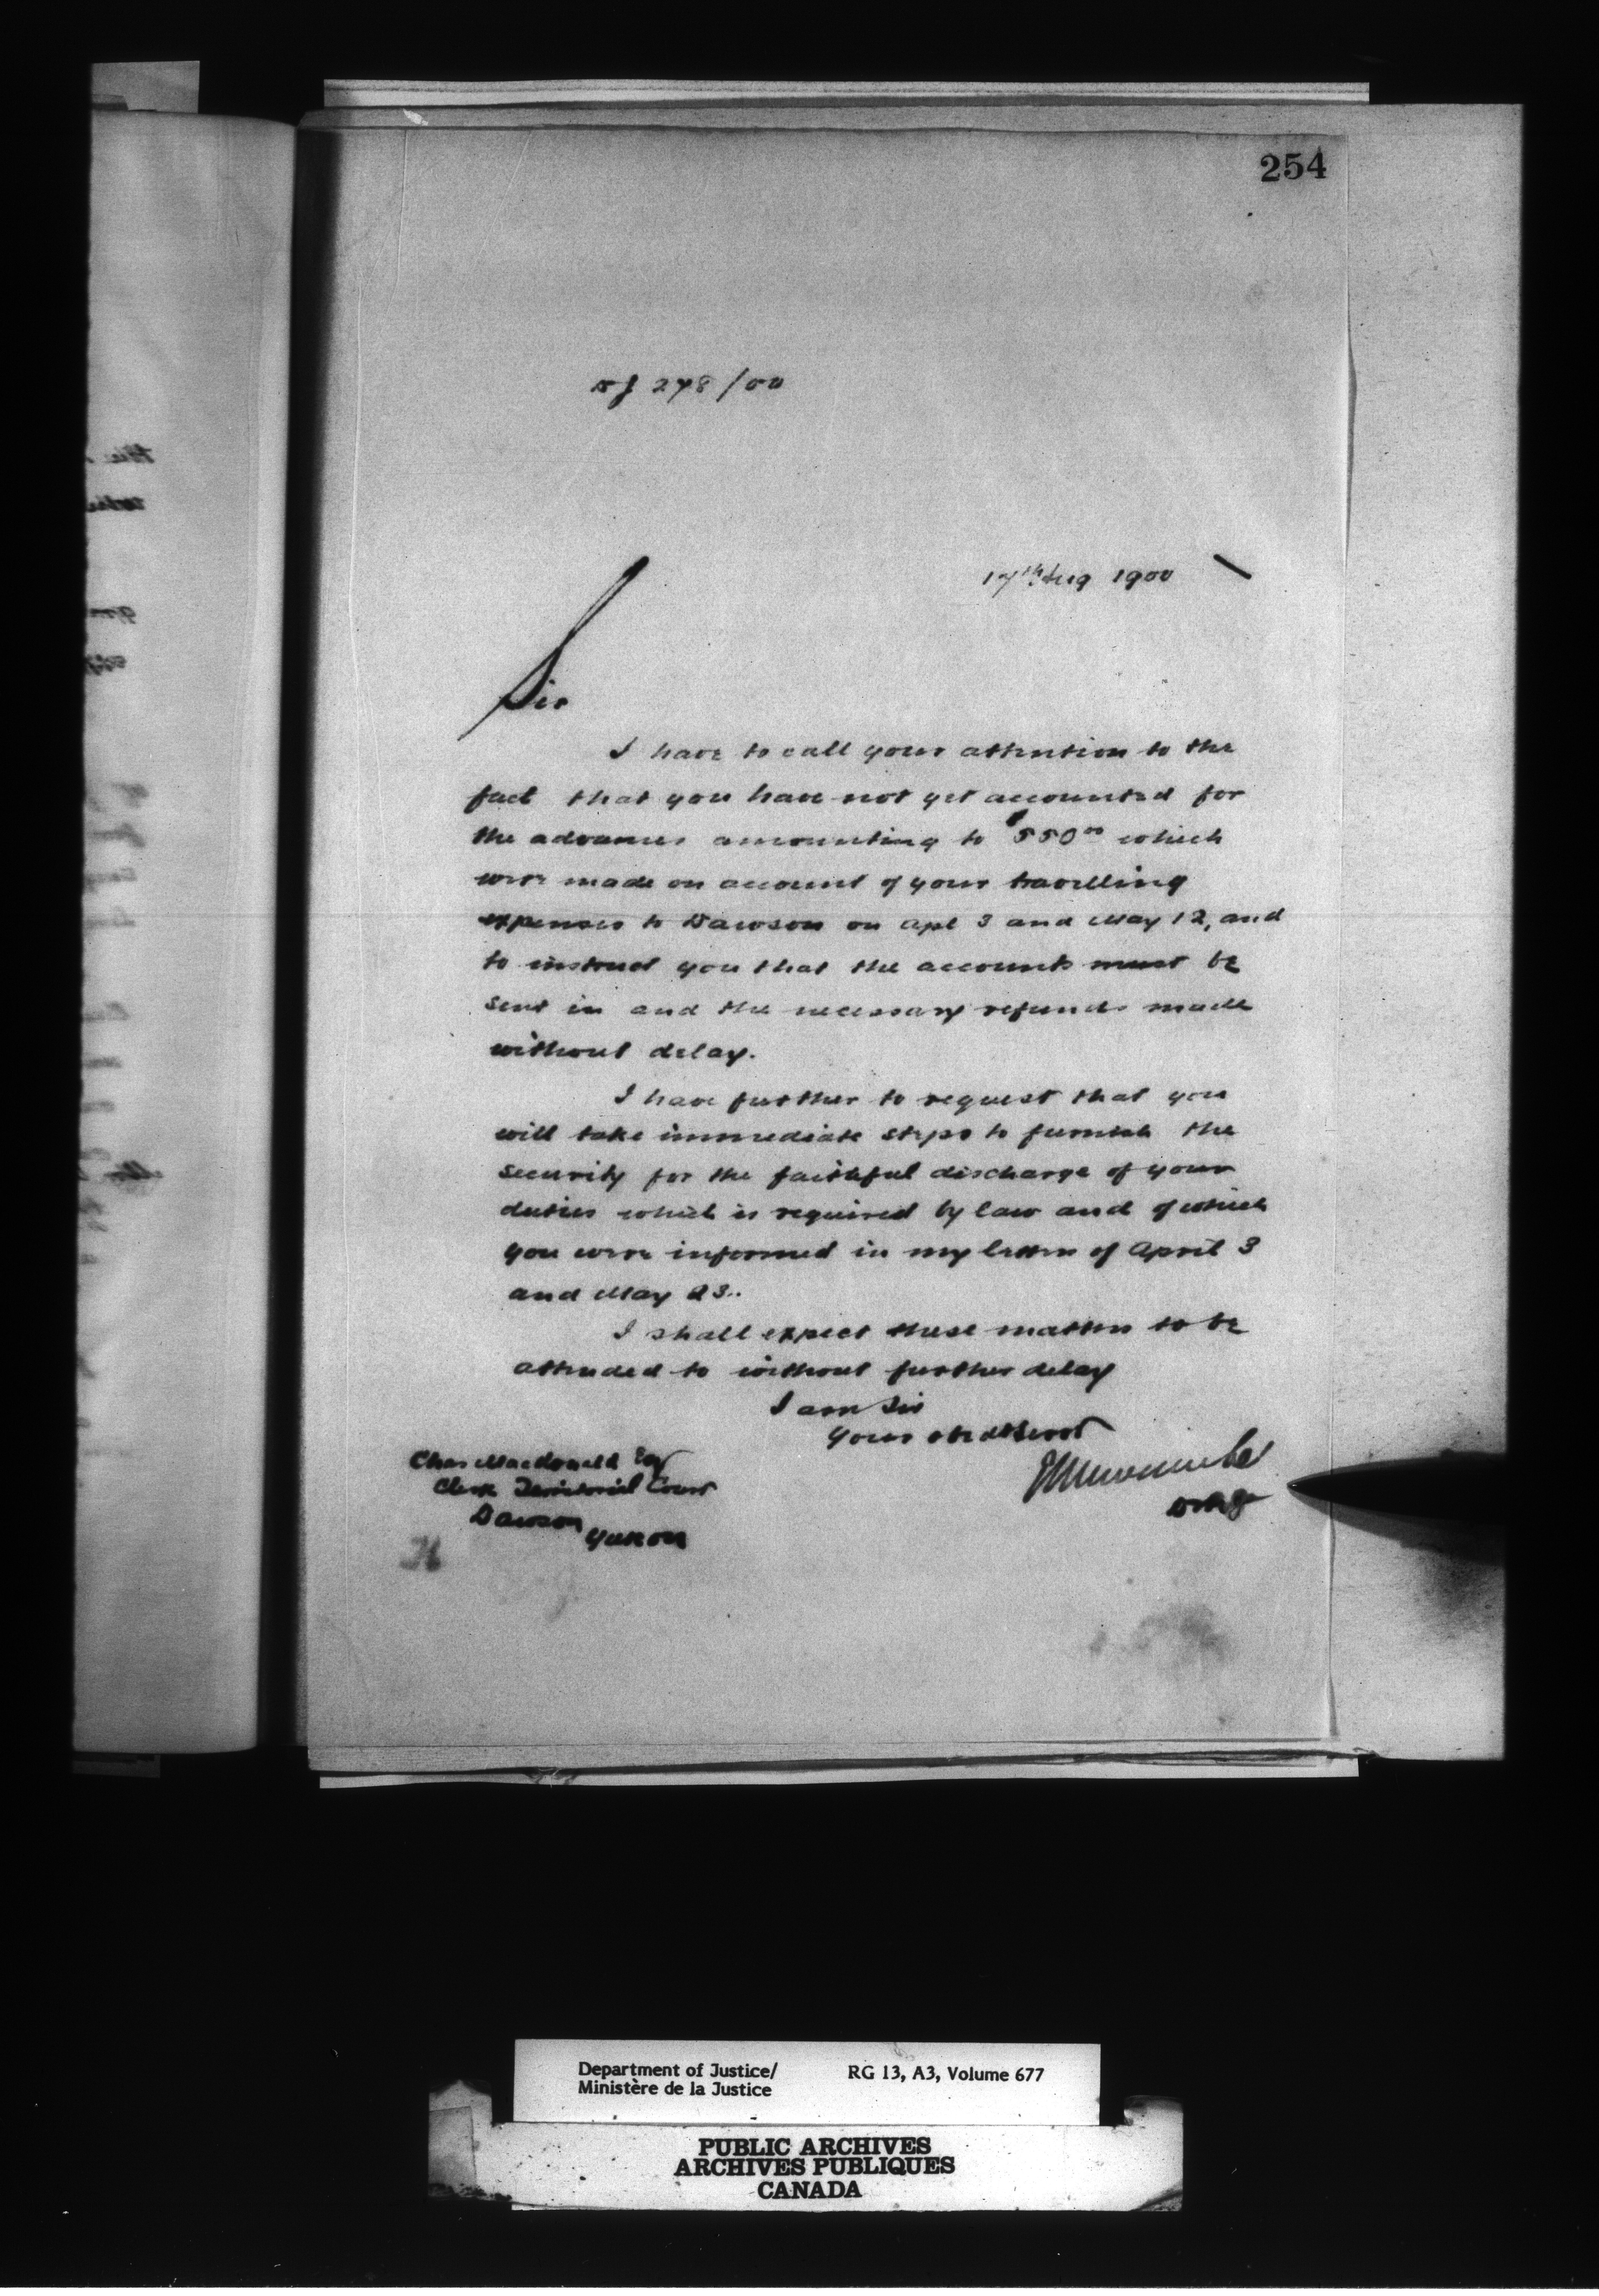 254
278/00
17th Aug 1900
Sir
I have to call your attention to the
fact that you have not yet accounted for
the advances amounting to $550.00 which
were made on account of your travelling
expenses to Dawson on Apl 3 and May 12, and
to instruct you that the accounts must be
sent in and the necessary refunds made
without delay.
I have further to request that you
will take immediate steps to furnish the
security for the faithful discharge of your
duties which is required by law and of which
you were informed in my letters of April 3
and May 23.
I shall expect these matters to be
attended to without further delay
I am Sir
Your obedt Servt
Chas Macdonald Esq
Clerk Territorial Court
Dawson
Yukon
Department of Justice/ RG 13, A3, Volume 677
Ministère de la Justice
PUBLIC ARCHIVES
ARCHIVES PUBLIQUES
CANADA